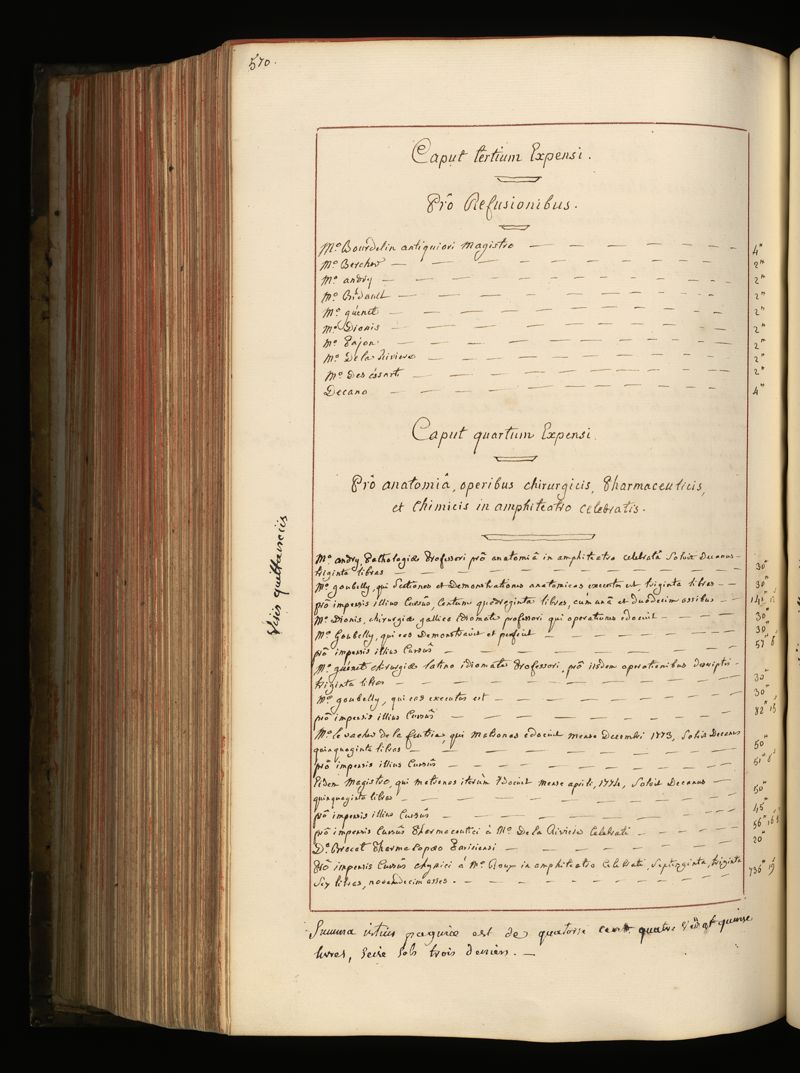 570.
Caput tertium Expensi.
Prô Refusionibus.
Mo. Bourdelin antiquiori magistro — 4"
Mo. Bercher — 2"
Mo. andry — 2"
Mo. Bridault — 2"
Mo. guénet — 2"
Mo. Dionis — 2"
Mo. Pajon — 2"
Mo. De la Riviere — 2"
Mo. Des éssart — 2"
Decano — 4"
Caput quartum Expensi.
Prô anatomiâ, operibus chirurgicis, Pharmaceuticis,
et Chimicis in amphiteatro celebratis.
Mo. andry Pathologiæ Professori prô anatomiâ in amphiteatro celebratâ Solvit Decanus —
triginta libras — 30"
Mo. goubelly, qui Sectiones et Demonstrationes anatomicas executus est, triginta libras — 30"
prô impensis illius Cursûs, Centum quadraginta libras, cum unâ et duodecim assibus — 141"
Mo. Dionis, chirurgiæ gallico idiomate professori qui operationes edocuit — 30"
Mo. Goubelly, qui eas Demonstravit et perfecit — 30"
prô impensis illius Cursûs — 57" 6
Mo. guénet chirurgiæ latino idiomate Professori, prô iisdem operationibus
triginta libras — 30"
Mo. goubelly, qui eas executus est — 30"
prô impensis illius Cursûs — 82"
Mo. le vacher de la feutrie, qui matronas edocuit mense Decembri 1773, Solvit Decanus
quinquaginta libras — 50"
prô impensis illius Cursûs — 51"
Eidem Magistro, qui matronas iterùm Edocuit mense aprili, 1774, Solvit Decanus —
quinquaginta libras — 50"
prô impensis illius Cursûs — 45"
prô impensis Cursûs Pharmaceutici à Mo. De la Riviere Celebrati — 56"
Do. Brocot Pharmacopæo Parisiensi — 20"
Prô impensis Cursûs chymici à Mo. Roux in amphiteatro Celebrati, Septingenta, triginta
Sex libras, novemdecim asses. — 736"
Summa istius paginæ est de quatorse cent quatre vingt quinse
livres, seise sols trois deniers. —